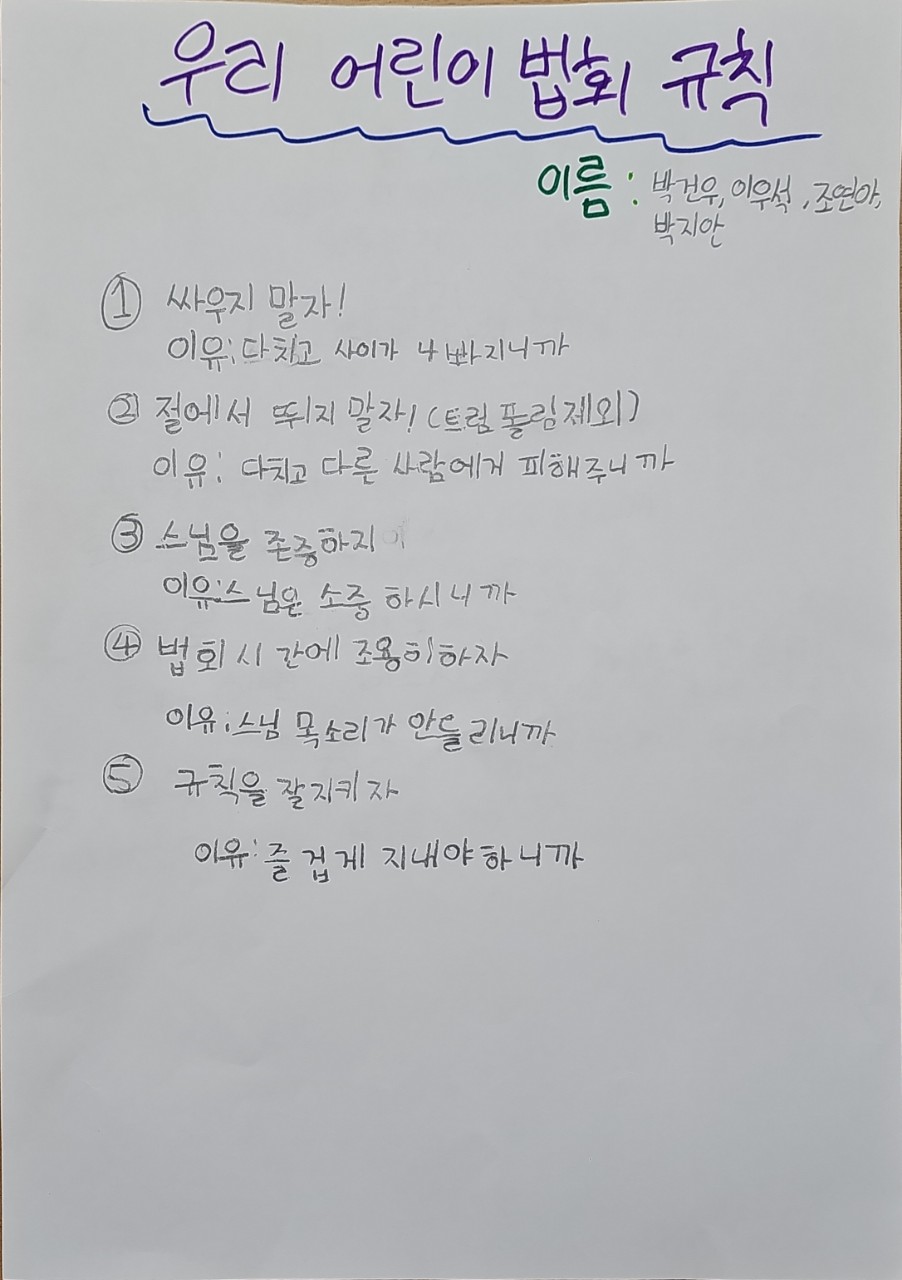 우리 어린이 법회 규칙
이름 : 박건우, 이우석, 조연아,
박지안
① 싸우지 말자!
이유: 다치고 사이가 나빠지니까
② 절에서 뛰지 말자! (트럼폴림제외)
이유: 다치고 다른 사람에게 피해주니까
③ 스님을 존중하지
이유: 스님은 소중하시니까
④ 법회시간에 조용히하자
이유: 스님 목소리가 안들리니까
⑤ 규칙을 잘지키자
이유: 즐겁게 지내야하니까